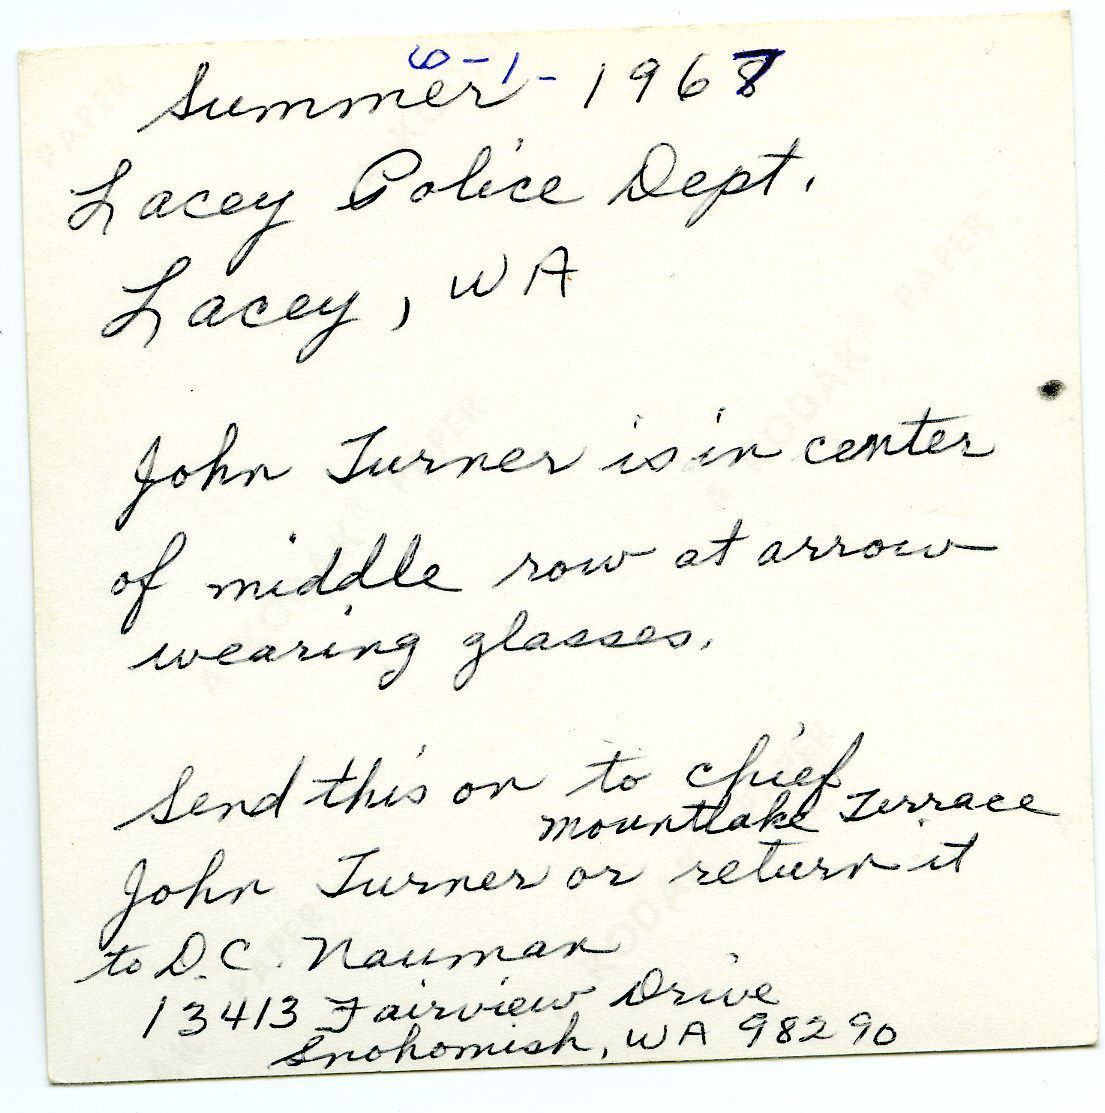 6-1-
Summer - 1967
Lacey Police Dept.
Lacey, WA
John Turner is in center
of middle row at arrow
wearing glasses.
Send this on to chief
Mountlake Terrace
John Turner or return it
to D.C. Nauman
13413 Fairview Drive
Snohomish, WA 98290